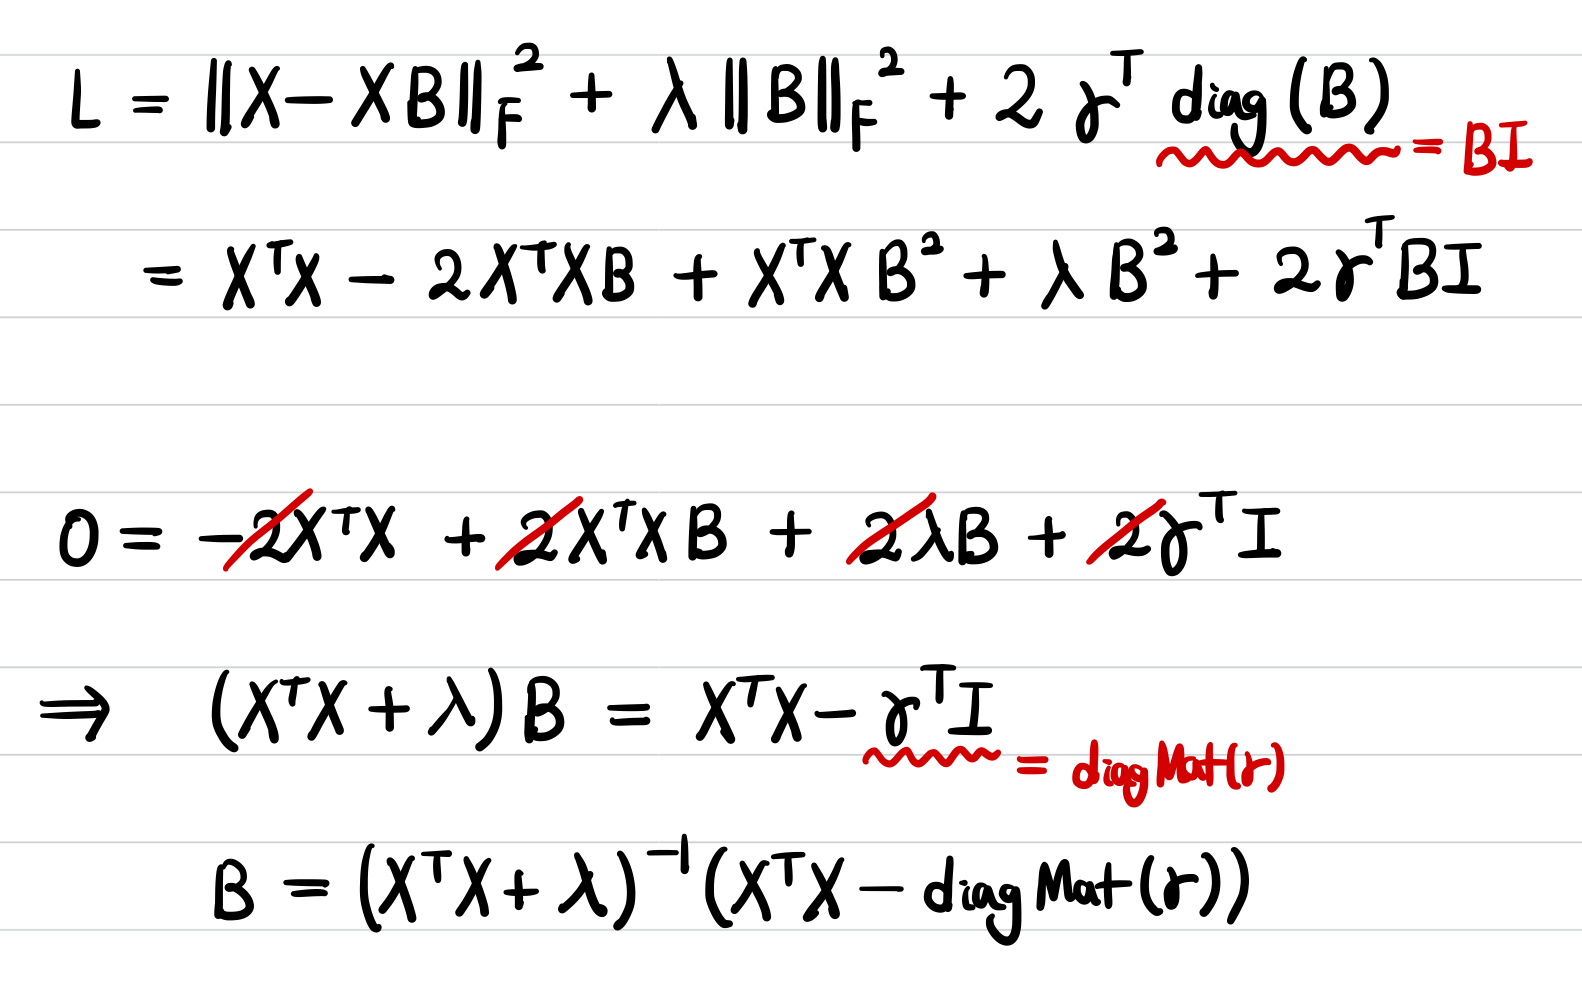 L = ||X − XB||_F^2 + λ||B||_F^2 + 2γ^T diag(B) = BI
= X^TX − 2X^TXB + X^TXB^2 + λB^2 + 2γ^TBI
0 = −2X^TX + 2X^TXB + 2λB + 2γ^TI
⇒ (X^TX + λ)B = X^TX − γ^TI = diagMat(γ)
B = (X^TX + λ)^−1(X^TX − diagMat(γ))